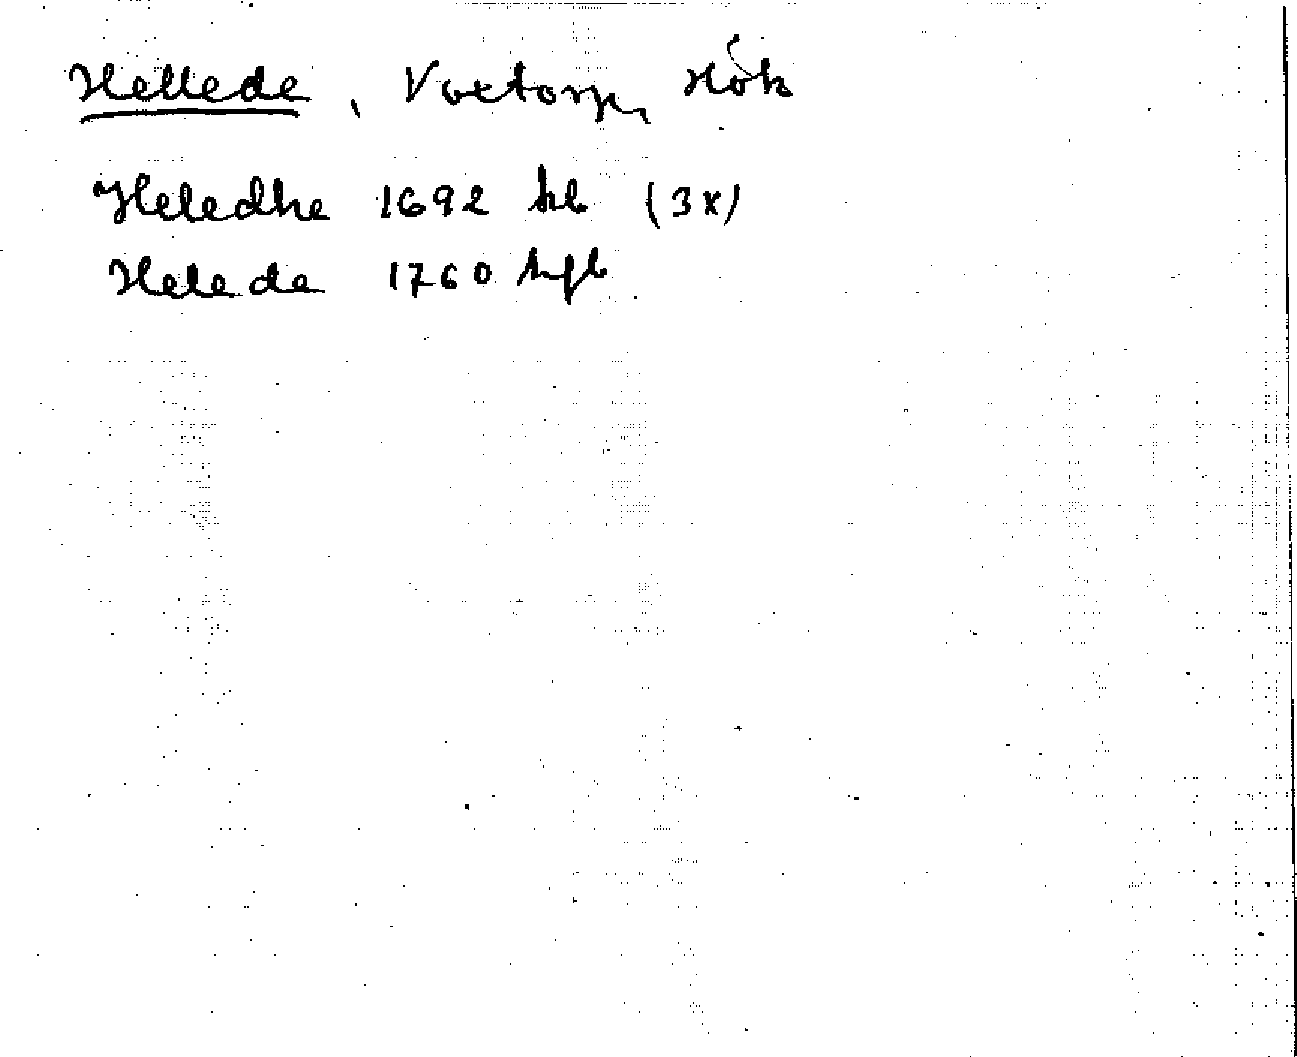 Hellede, Voxtorp, Hök
Heledhe 1692 hb (3x)
Helede 1760 hfb